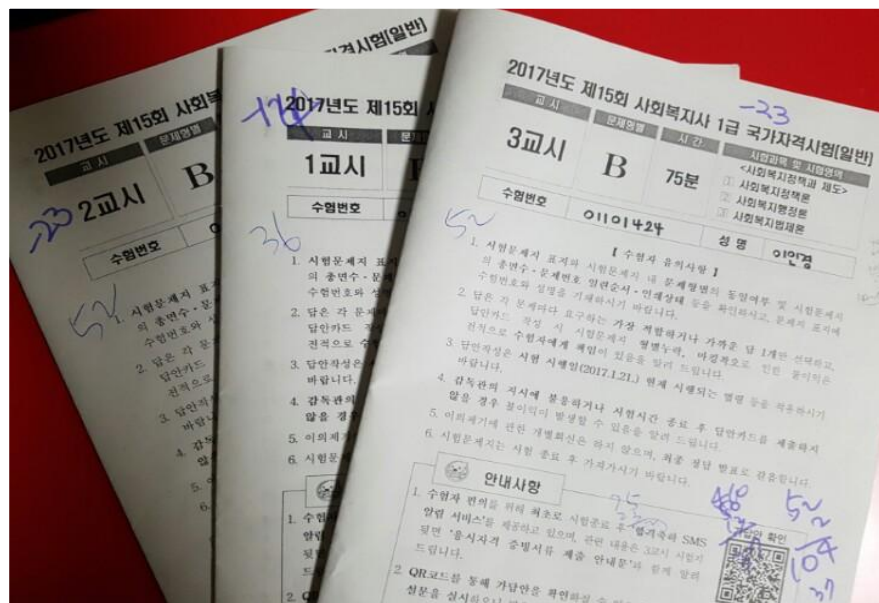 2017년도 제15회 사회복
교시
문제형별
-23
2교시
B
수험번호
52
1. 시험문제지 표
의 총면수·문
수험번호와
2. 답은 각 문
답안카드
전적으로
3. 답안작
바랍니
4. 감독
않을
5.
6.
자격시험[일반]
2017년도 제15회
교시
1교시
수험번호
36
1. 시험문제지 표지
의 총면수·문제
수험번호와 성
2. 답은 각 문제
답안카드 작성
전적으로 수험
3. 답안작성은
바랍니다.
4. 감독관의
않을 경우
5. 이의제기
6. 시험문제
1. 수험
알림
뒷면
드
2. QR
-23
2017년도 제15회 사회복지사 1급 국가자격시험[일반]
교시
문제형별
시간
시험과목 및 시험영역
3교시
B
75분
<사회복지정책과 제도>
1 사회복지정책론
2 사회복지행정론
3 사회복지법제론
수험번호
01101424
성명
이인경
52
【 수험자 유의사항 】
1. 시험문제지 표지와 시험문제지 내 문제형별의 동일여부 및 시험문제지
의 총면수·문제번호 일련순서·인쇄상태 등을 확인하시고, 문제지 표지에
수험번호와 성명을 기재하시기 바랍니다.
2. 답은 각 문제마다 요구하는 가장 적합하거나 가까운 답 1개만 선택하고,
답안카드 작성 시 시험문제지 형별누락, 마킹착오로 인한 불이익은
전적으로 수험자에게 책임이 있음을 알려 드립니다.
3. 답안작성은 시험 시행일(2017.1.21.) 현재 시행되는 법령 등을 적용하시기
바랍니다.
4. 감독관의 지시에 불응하거나 시험시간 종료 후 답안카드를 제출하지
않을 경우 불이익이 발생할 수 있음을 알려 드립니다.
5. 이의제기에 관한 개별회신은 하지 않으며, 최종 정답 발표로 갈음합니다.
6. 시험문제지는 시험 종료 후 가져가시기 바랍니다.
안내사항
1. 수험자 편의를 위해 최초로 시험종료 후 '합격축하 SMS
알림 서비스'를 제공하고 있으며, 관련 내용은 3교시 시험지
뒷면 '응시자격 증빙서류 제출 안내문'과 함께 알려
드립니다.
2. QR코드를 통해 가답안을 확인하실 수
설문을 실시하오니
답안 확인
52
52
104
37